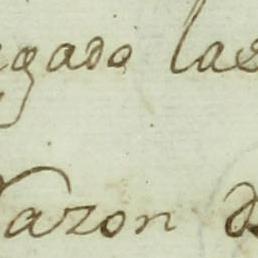 gado las
Razon d